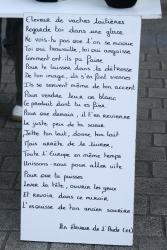 Eleveur de vaches laitières
Regarde toi dans une glace
Ne vois-tu pas que l'on se moque
Toi qui travaille, toi qui angoisse
Comment ont-ils pu faire
Pour te laisser dans la détresse
De ton image, ils s'en font vivance
Ils se servent même de ton accent
Pour vendre leur or blanc
Ce produit dont tu es fier.
Pour que demain, il t'en revienne
Le juste prix de ta sueur
Jette ton lait, donne ton lait
Mais arrête de le livrer,
Toute l'Europe en même temps
Unissons-nous pour aller vite
Pour que tu puisses
Lever la tête, ouvrir les yeux
Et revoir dans ce miroir
L'esquisse de ton ancien sourire
Un éleveur de l'Aude (11)